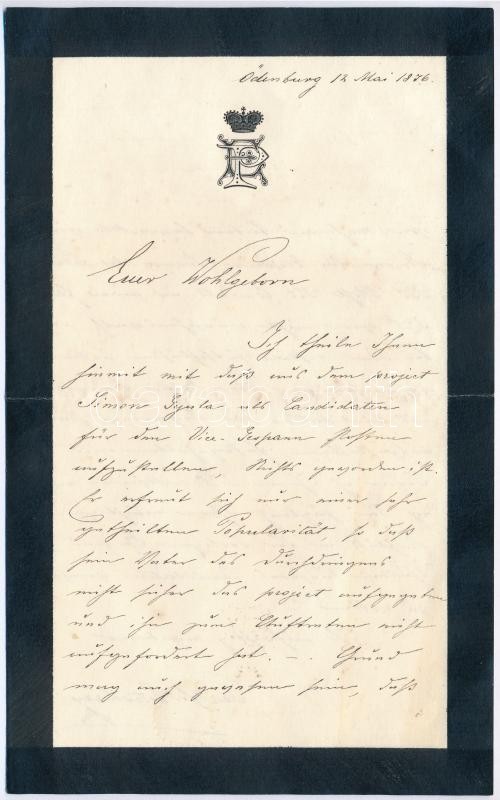 Ödenburg 12 Mai 1876.
Euer Wohlgeborn
Ich theile Ihnen
hiemit mit daß aus dem project
Simon Gyula als Candidaten
für den Vice-Gespann Posten
aufzustellen, Nichts geworden ist.
Er erfreut sich nur einer sehr
getheilten Popularität, so daß
sein Vater des Durchdringens
nicht sicher das project aufgegeben
und ihn zum Auftreten nicht
aufgefordert hat. –. Grund
mag auch gewesen sein, daß